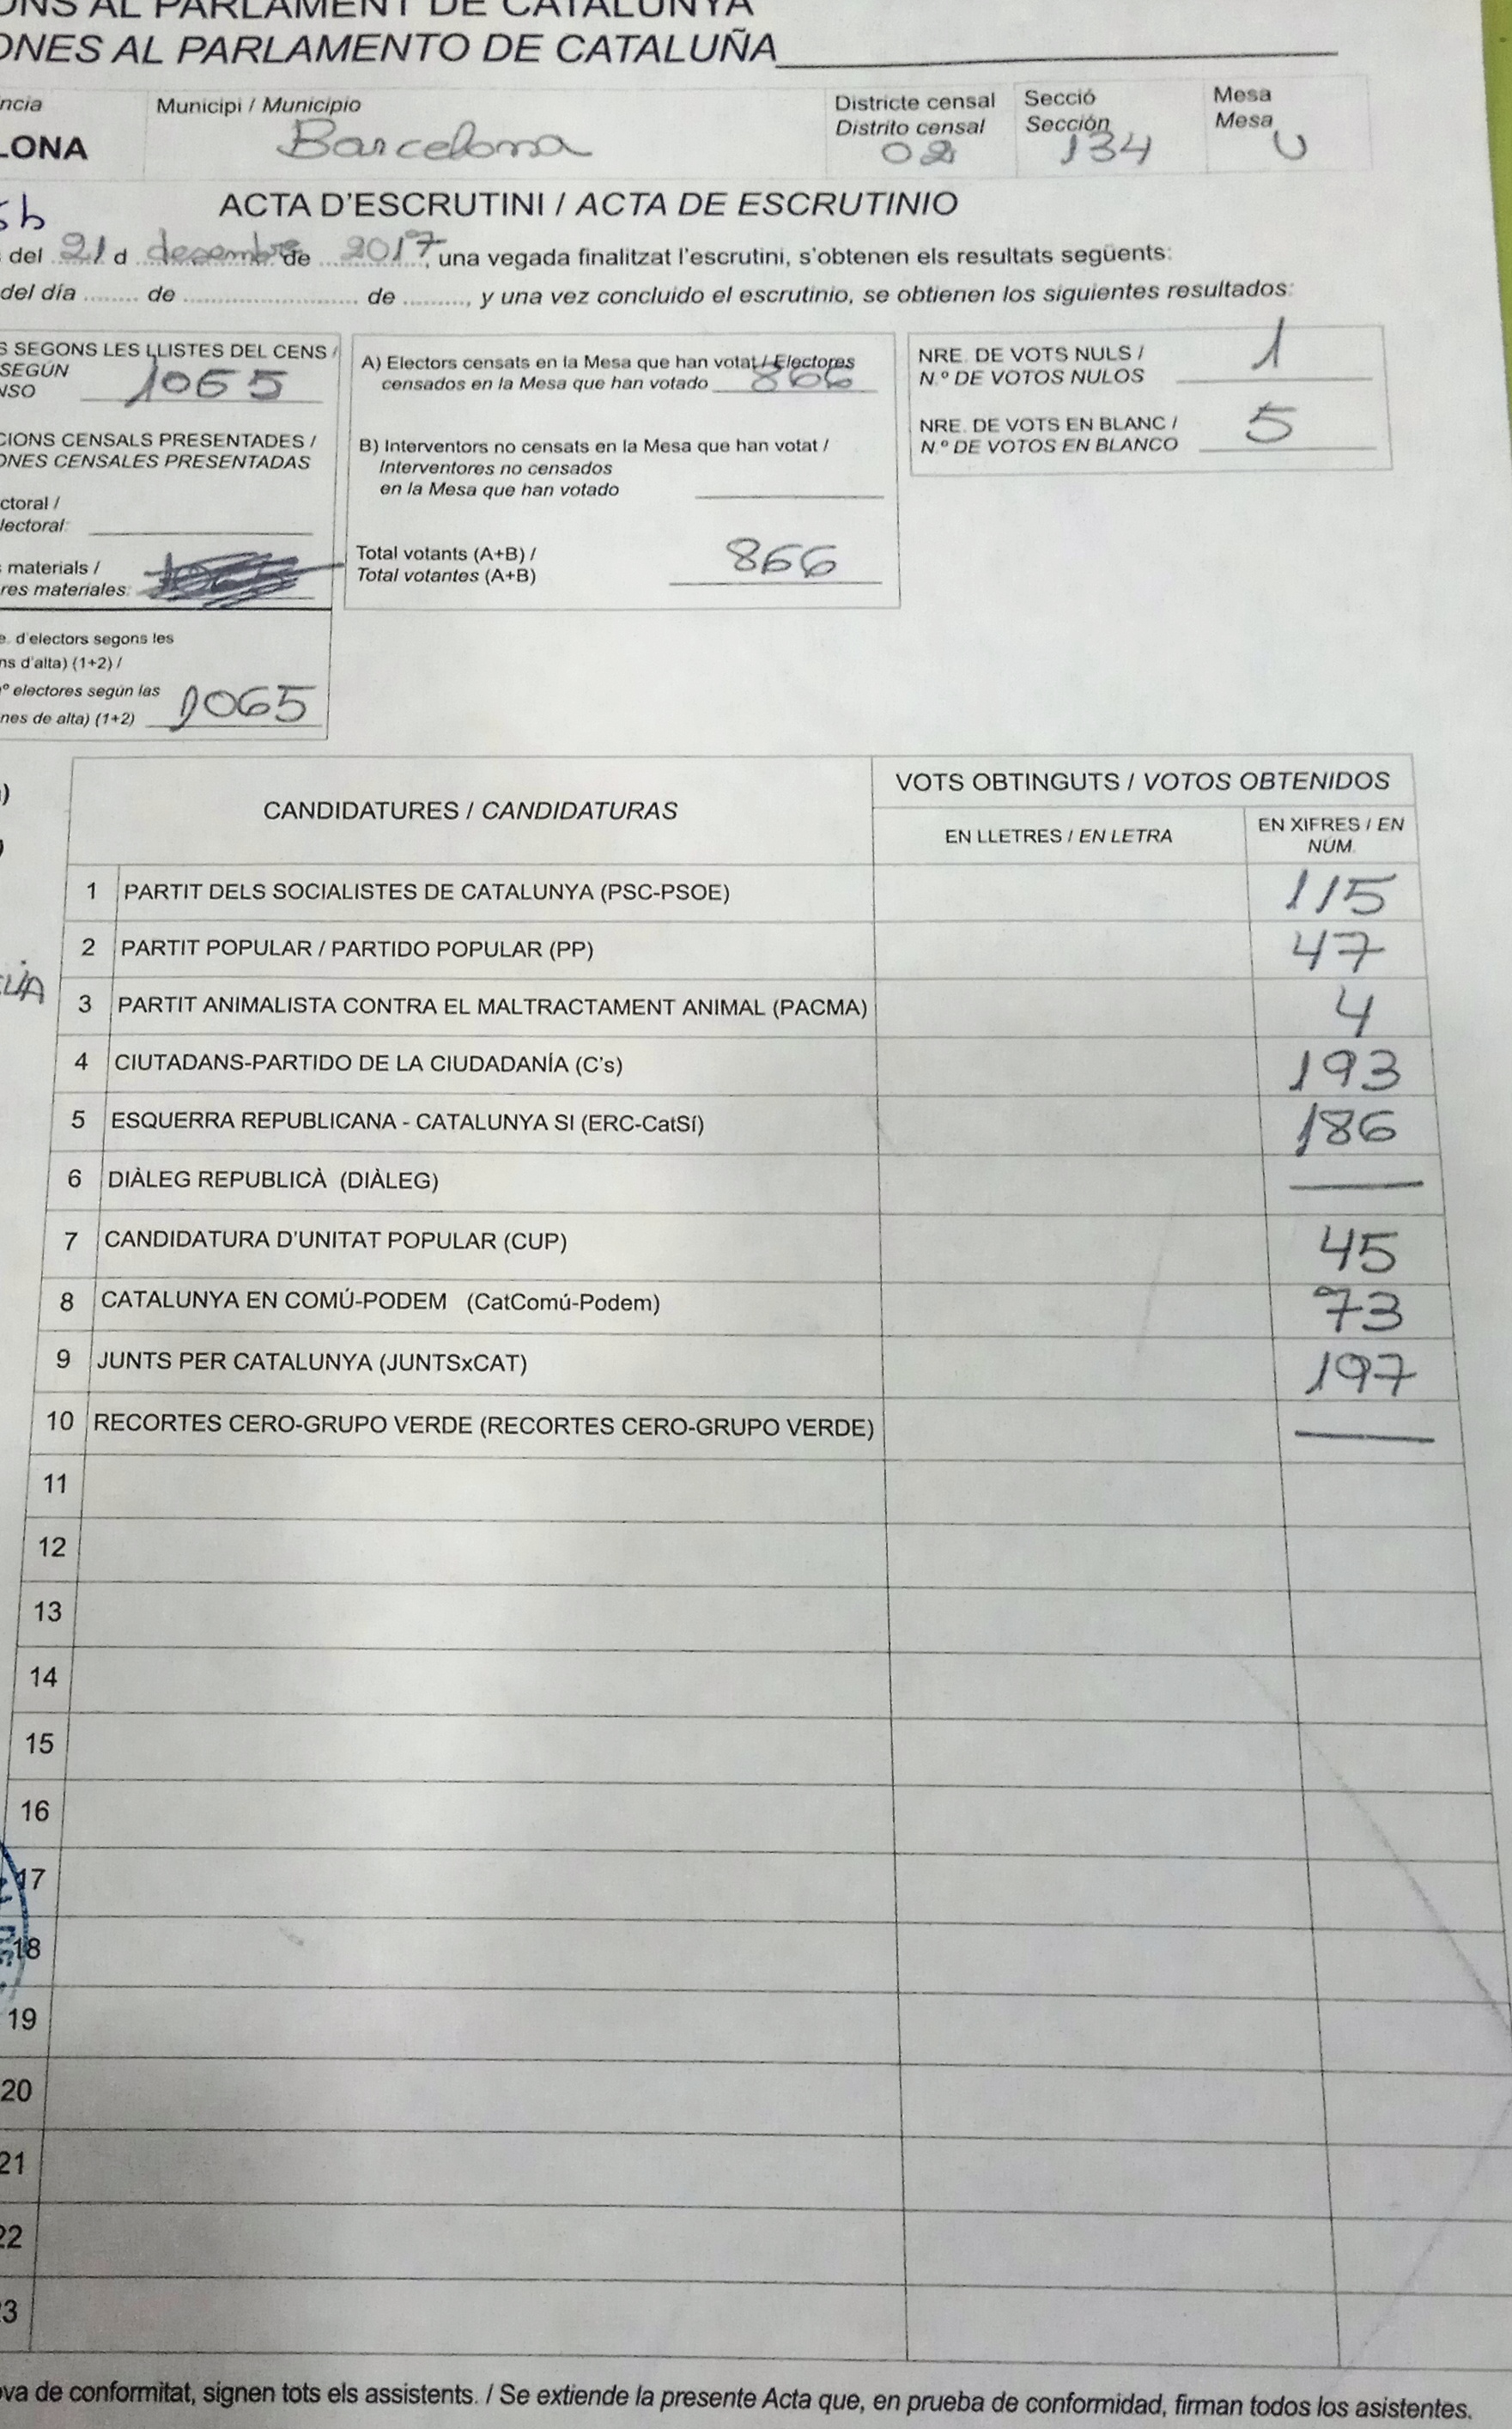 ONS AL PARLAMENT DE CATALUNYA
ONES AL PARLAMENTO DE CATALUÑA
ncia
LONA
Municipi / Municipio
Barcelona
Districte censal
Distrito censal
02
Secció
Sección
134
Mesa
Mesa
U
ACTA D'ESCRUTINI / ACTA DE ESCRUTINIO
del 21 d desembre de 2017, una vegada finalitzat l'escrutini, s'obtenen els resultats següents:
del día ........ de ............................ de ........., y una vez concluido el escrutinio, se obtienen los siguientes resultados:
S SEGONS LES LLISTES DEL CENS /
SEGÚN
NSO 1065
CIONS CENSALS PRESENTADES /
ONES CENSALES PRESENTADAS
ctoral /
lectoral:
materials /
res materiales:
e. d'electors segons les
ns d'alta) (1+2) /
º electores según las
nes de alta) (1+2) 1065
A) Electors censats en la Mesa que han votat / Electores
censados en la Mesa que han votado 866
B) Interventors no censats en la Mesa que han votat /
Interventores no censados
en la Mesa que han votado
Total votants (A+B) /
Total votantes (A+B) 866
NRE. DE VOTS NULS /
N.º DE VOTOS NULOS 1
NRE. DE VOTS EN BLANC /
N.º DE VOTOS EN BLANCO 5
CANDIDATURES / CANDIDATURAS
VOTS OBTINGUTS / VOTOS OBTENIDOS
EN LLETRES / EN LETRA
EN XIFRES / EN
NÚM.
1 PARTIT DELS SOCIALISTES DE CATALUNYA (PSC-PSOE) 115
2 PARTIT POPULAR / PARTIDO POPULAR (PP) 47
3 PARTIT ANIMALISTA CONTRA EL MALTRACTAMENT ANIMAL (PACMA) 4
4 CIUTADANS-PARTIDO DE LA CIUDADANÍA (C's) 193
5 ESQUERRA REPUBLICANA - CATALUNYA SI (ERC-CatSí) 186
6 DIÀLEG REPUBLICÀ (DIÀLEG) —
7 CANDIDATURA D'UNITAT POPULAR (CUP) 45
8 CATALUNYA EN COMÚ-PODEM (CatComú-Podem) 73
9 JUNTS PER CATALUNYA (JUNTSxCAT) 197
10 RECORTES CERO-GRUPO VERDE (RECORTES CERO-GRUPO VERDE) —
11
12
13
14
15
16
17
18
19
20
21
22
23
ova de conformitat, signen tots els assistents. / Se extiende la presente Acta que, en prueba de conformidad, firman todos los asistentes.